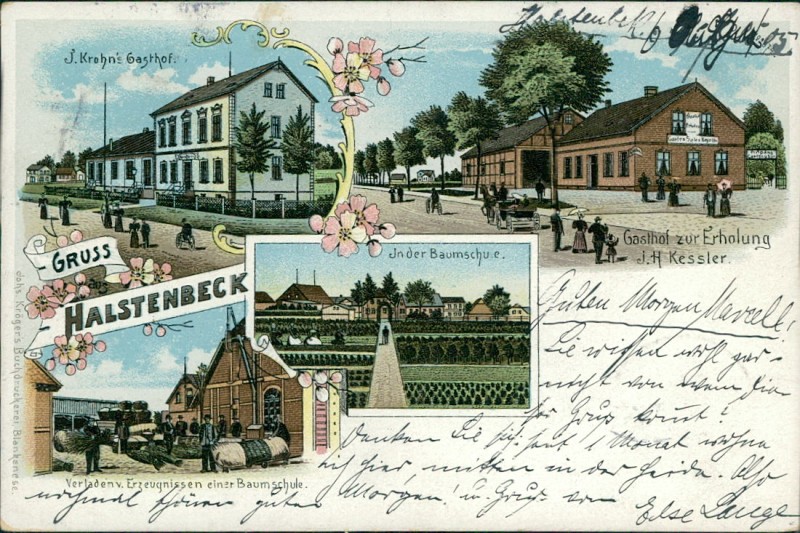 Halstenbek, 6
J. Krohn's Gasthof.
Gasthof zur Erholung
J. H. Kessler.
Gruss
aus
Halstenbeck
In der Baumschule.
Verladen v. Erzeugnissen einer Baumschule.
Johs. Krögers Buchdruckerei, Blankenese.
Guten Morgen Marcell!
Sie wissen wohl gar-
nicht von wem die-
ser Gruss kommt!
Denken Sie sich, seit 1 Monat wohne
ich hier, mitten in der Heide. Also
nochmal schönen guten Morgen! u. Gruss von
Else Lange